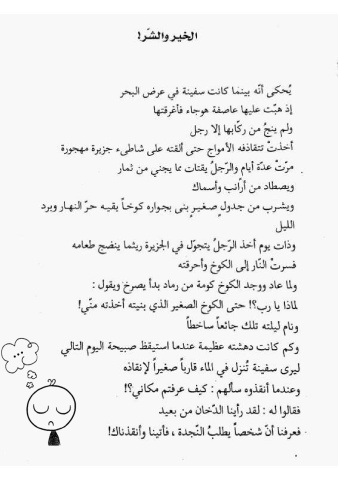 الخير والشّر!
يُحكى أنّه بينما كانت سفينة في عرض البحر
إذ هبّت عليها عاصفة هوجاء فأغرقتها
ولم ينجُ من ركّابها إلا رجل
أخذتْ تتقاذفه الأمواج حتى ألقته على شاطىء جزيرة مهجورة
مرّتْ عدّة أيام والرّجلُ يقتات مما يجني من ثمار
ويصطاد من أرانب وأسماك
ويشرب من جدولٍ صغيرٍ بنى بجواره كوخاً يقيه حرّ النهار وبرد
الليل
وذات يوم أخذ الرّجلُ يتجوّل في الجزيرة ريثما ينضج طعامه
فسرتْ النّار إلى الكوخ وأحرقته
ولما عاد ووجد الكوخ كومة من رماد بدأ يصرخ ويقول :
لماذا يا رب؟! حتى الكوخ الصغير الذي بنيته أخذته منّي!
ونام ليلته تلك جائعاً ساخطاً
وكم كانت دهشته عظيمة عندما استيقظ صبيحة اليوم التالي
ليرى سفينة تُنزل في الماء قارباً صغيراً لإنقاذه
وعندما أنقذوه سألهم : كيف عرفتم مكاني؟!
فقالوا له : لقد رأينا الدّخان من بعيد
فعرفنا أنّ شخصاً يطلبُ النّجدة ، فأتينا وأنقذناك!